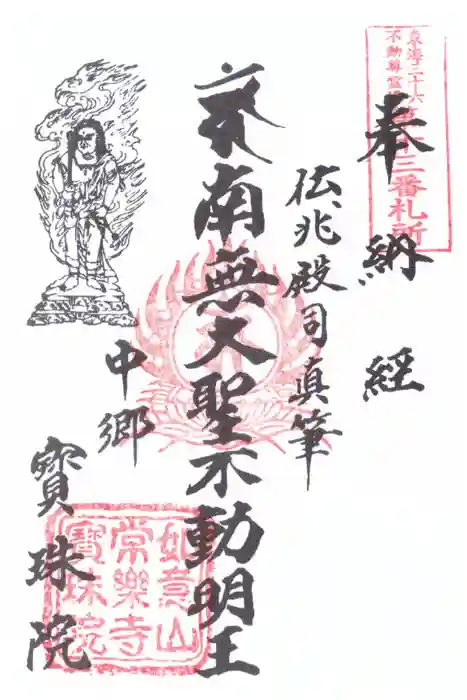 奉納経
東海三十六
不動尊霊
三番札所
伝兆殿司真筆
南無大聖不動明王
中郷
寳珠院
如意山
常樂寺
寳珠院